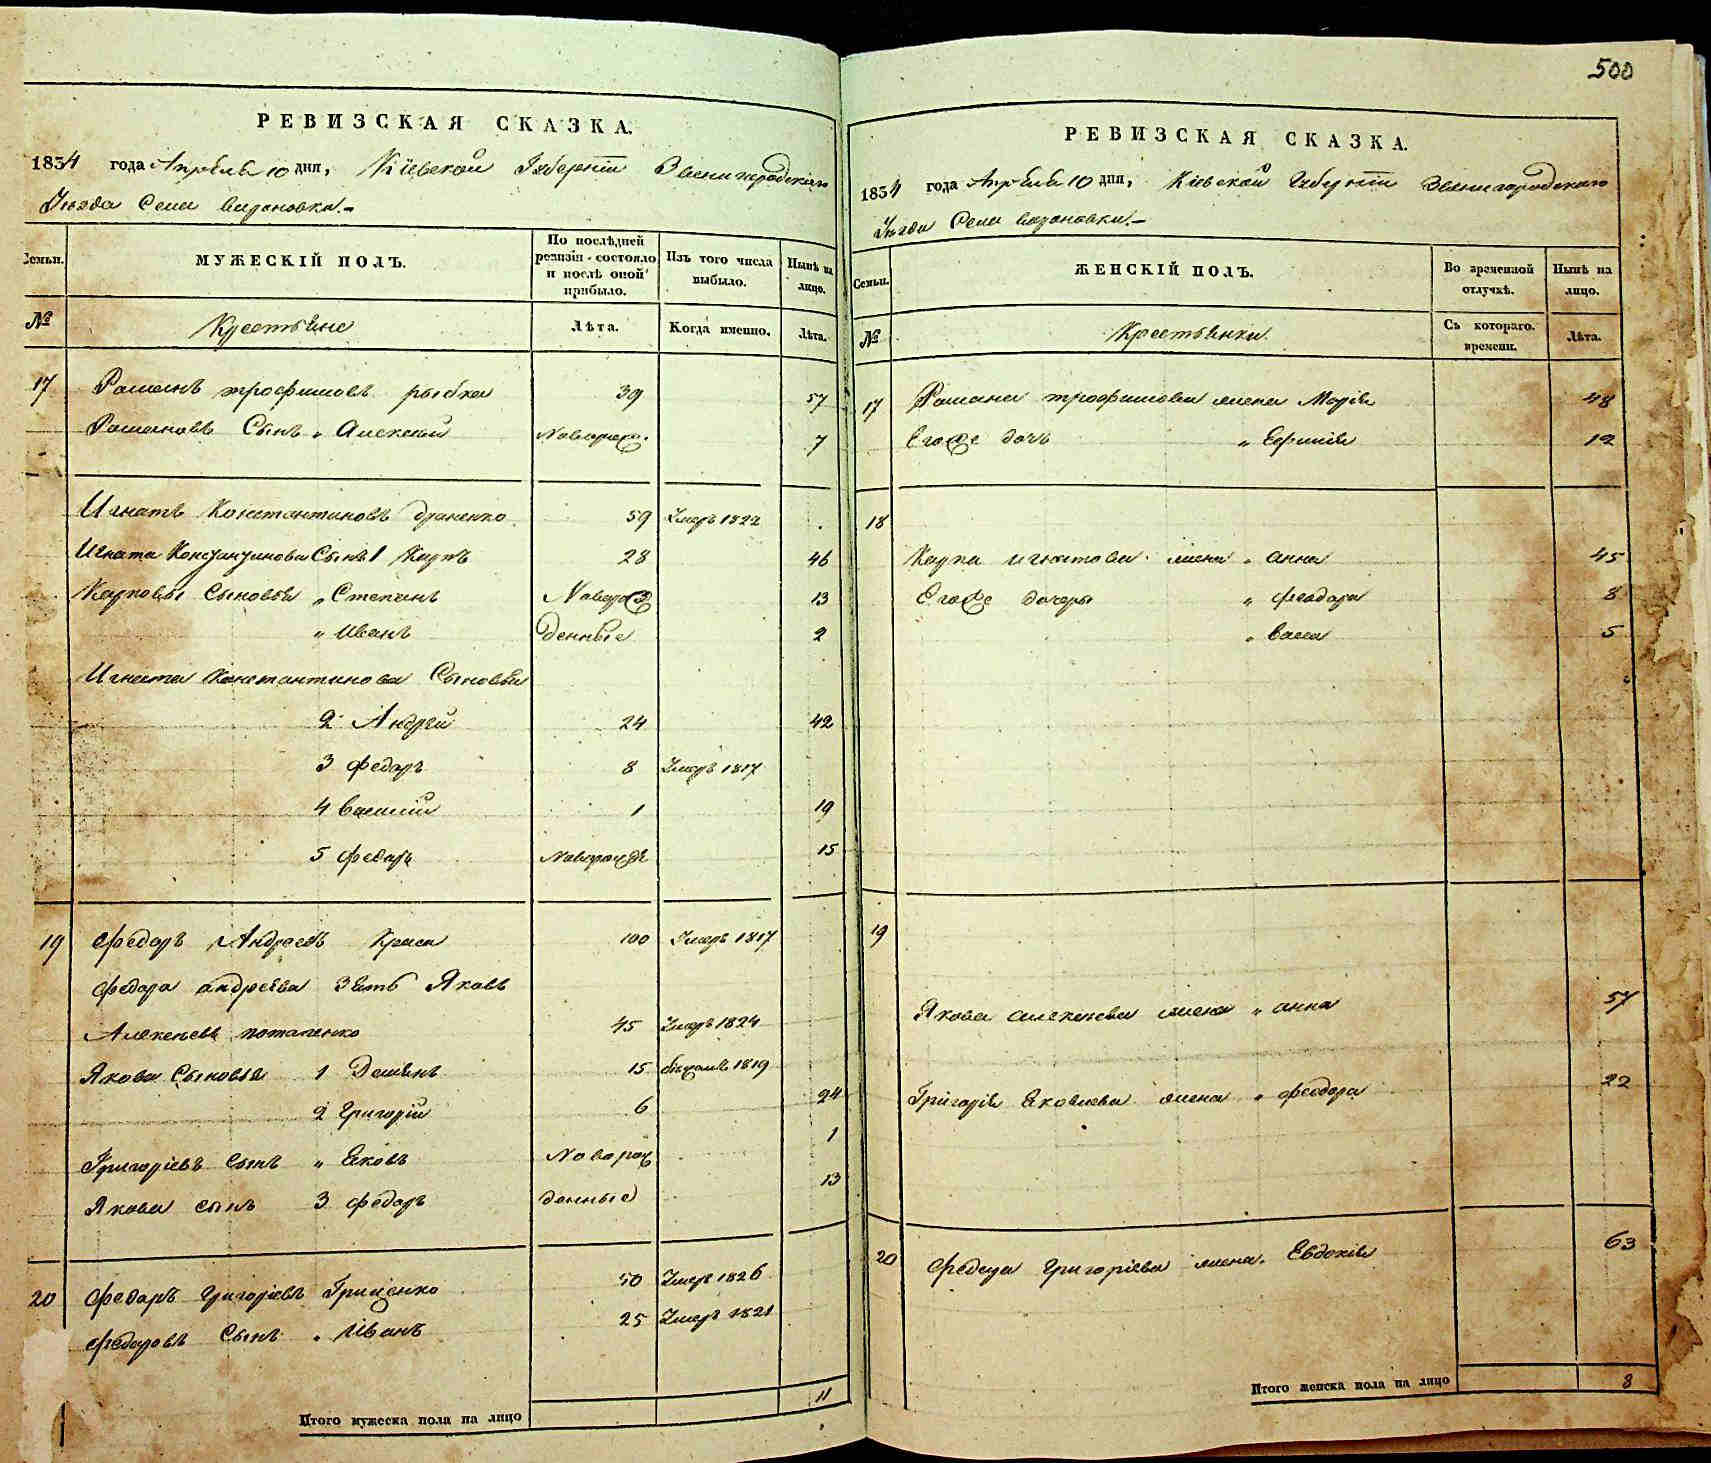 500
РЕВИЗСКАЯ СКАЗКА.
1834 года Апреля 10 дня, Кіевской Губерніи Звенигородскаго
Уезда Села
Семьи.
МУЖЕСКІЙ ПОЛЪ.
По послѣдней ревизіи состояло и послѣ оной прибыло.
Изъ того числа выбыло.
Нынѣ на лицо.
№
Крестьяне
Лѣта.
Когда именно.
Лѣта.
17 Романъ Трофимовъ рыбка 39 57
Романовъ Сынъ „ Алексей Новорожд. 7
Игнатъ Константиновъ 59 Умеръ 1822
Игната Константинова Сынъ 1 Карпъ 28 46
Карповы Сыновья „ Степанъ Новорож 13
„ Иванъ денные 2
Игната Константинова Сыновья
2 Андрей 24 42
3 Федоръ 8 Умеръ 1817
4 Василий 1 19
5 Федоръ 15
19 Федоръ Андреевъ 100 Умеръ 1817
Федора Андреева Зять Яковъ
Алексеевъ потапенко 45 Умеръ 1824
Якова Сыновья 1 Демянъ 15 1819
2 Григорій 6 24
Григоріевъ Сынъ „ Яковъ Новорож 1
Якова сынъ 3 Федоръ денные 13
20 Федоръ Григоріевъ Гриценко 50 Умеръ 1826
Федоровъ Сынъ „ Иванъ 25 Умеръ 1821
Итого мужеска пола на лицо 11
РЕВИЗСКАЯ СКАЗКА.
1834 года Апреля 10 дня, Кіевской Губерніи Звенигородскаго
Уезда Села
Семьи.
ЖЕНСКІЙ ПОЛЪ.
Во временной отлучкѣ.
Нынѣ на лицо.
№
Крестьянки
Съ котораго. времени.
Лѣта.
17 Романа Трофимова жена Марія 48
Егоже дочь „ 12
18
Карпа Игнатова жена „ анна 45
Егоже дочеры „ феодора 8
„ васса 5
19
Якова алексеева жена „ анна 57
Григорія Яковлева жена „ феодора 22
20 Федора Григоріева жена „ Евдокія 63
Итого женска пола на лицо 8